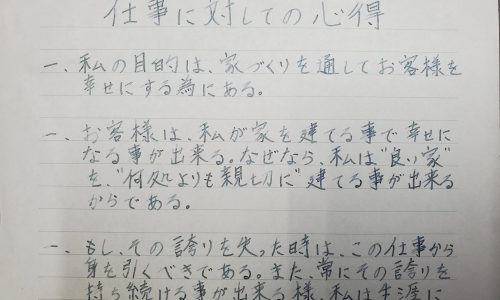 仕事に対しての心得
一、私の目的は、家づくりを通してお客様を
幸せにする為にある。
一、お客様は、私が家を建てる事で幸せに
なる事が出来る。なぜなら、私は"良い家"
を、"何処よりも親切に"建てる事が出来る
からである。
一、もし、その誇りを失った時は、この仕事から
身を引くべきである。また、常にその誇りを
持ち続ける事が出来る様、私は生涯に